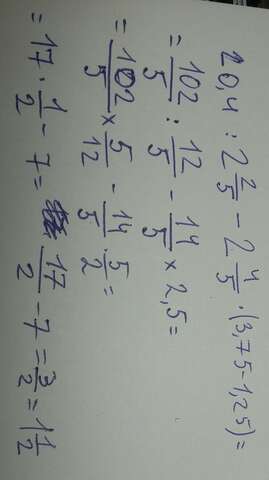 20,4 : 2 2/5 - 2 4/5 · (3,75-1,25) =
= 102/5 : 12/5 - 14/5 × 2,5 =
= 102/5 × 5/12 - 14/5 · 5/2 =
= 17 · 1/2 - 7 = 17/2 - 7 = 3/2 = 1 1/2